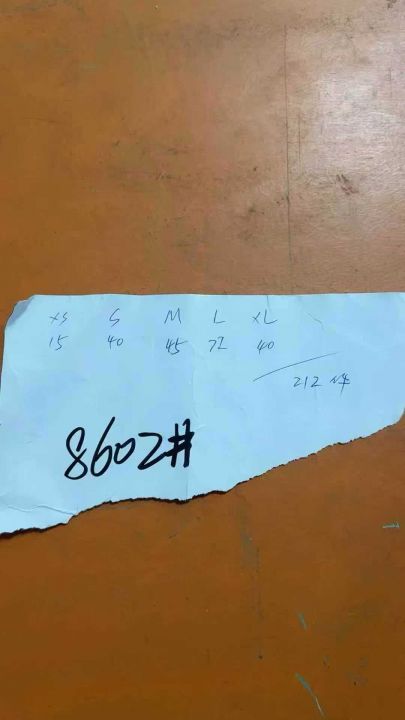 XS S M L XL
15 40 45 72 40
212 件
8602#